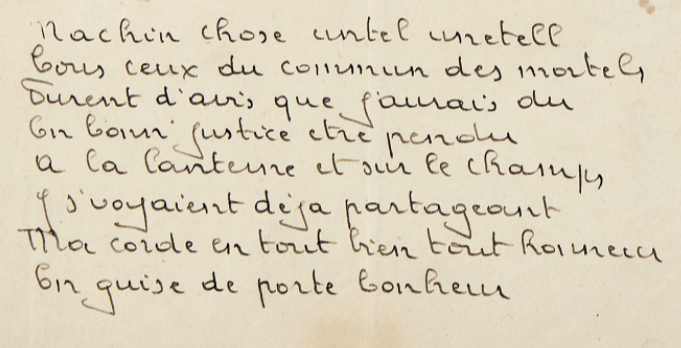 Machin chose untel unetell
Tous ceux du commun des mortels
Furent d'avis que j'aurais du
En bonn' justice etre pendu
A la lanterne et sur le champs
Y s'voyaient déja partageant
Ma corde en tout bien tout honneur
En guise de porte bonheur